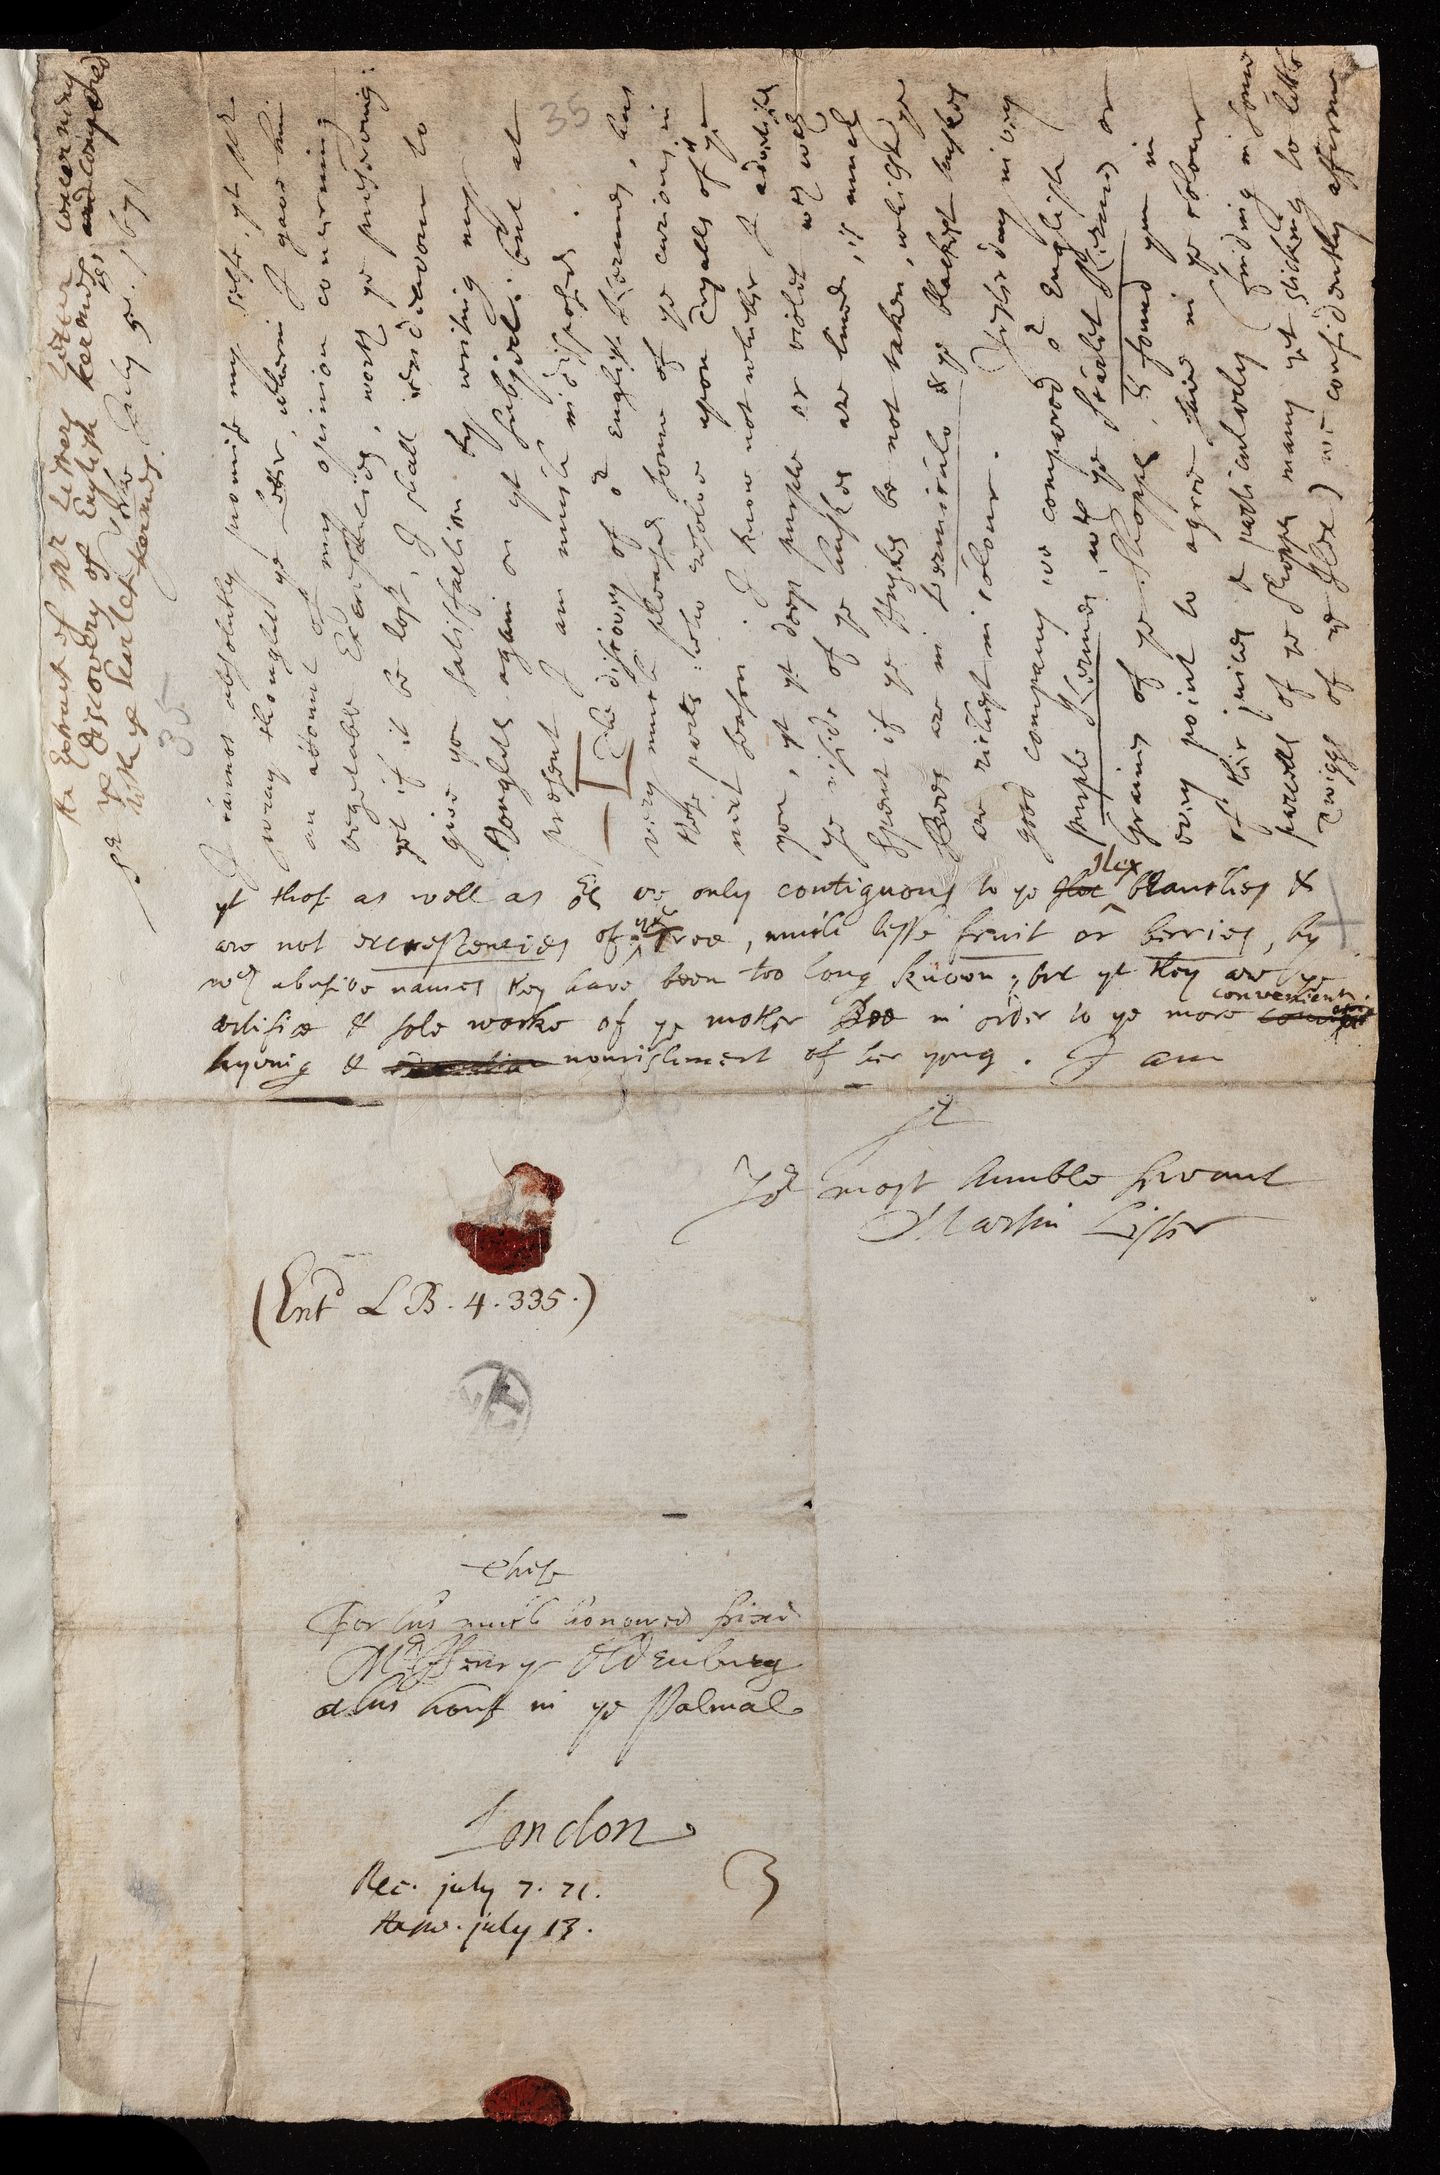 An Extract of Mr Listers Letter concerning
ye Discovery of English kermes, and compared
with ye Scarlet kermes.
35
Sr
York July 5th. 1671
I cannot absolutely promise my selfe, yt Mr
wray thought ye letter, wherin I gave him
an account of my opinion concerning
vegetable Excrescencies, worth ye preserving:
yet if it be lost, I shall indeavour to
give you satisfaction by writing my
thoughts again on yt subject: but at
present I am much indisposed.
The discovery of or English kermes, has
very much pleased some of ye curious in
these parts: who resolve upon tryalls of it ye
next season. I know not whether I advertised
you, yt ye deep purple or violet wth wch
ye inside of ye huskes are lined, is much
spent if ye Huskes be not taken, whilst ye
Bees are in Vermiculo & ye blackest huskes
are richest in colour. Yesterday in very
good company we compared or English
purple Kermes, wth ye scarlet Kermes or
Grains of ye Shopps, & found ym in
every point to agree save in ye colour
of their juices & particularly (finding in some
parcells of ye Shopps many yet sticking to little
Twiggs of ye Ilex) we confidently affirme
yt those as well as ors are only contiguous to ye Ilex branches &
are not excrescencies of ye Tree, much lesse fruit or berries, by
wch abusive names they have been too long known; but yt they are ye
artifice & sole worke of ye mother Bee in order to ye more convenient
hyving & nourishment of her yong. I am
Sr
Yor most humble servant
Martin Lister
(Entd L B. 4. 335.)
These
For his much honoured friend
Mr Henry Oldenburg
at his house in ye Palmal
London
Rec. july 7. 71.
Answ. july 13.
3